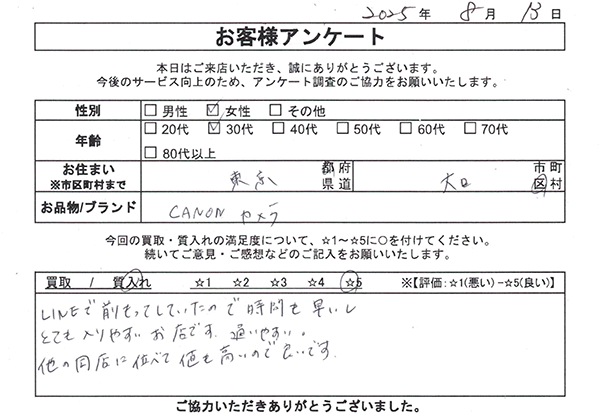 2025年 8月 13日
お客様アンケート
本日はご来店いただき、誠にありがとうございます。
今後のサービス向上のため、アンケート調査のご協力をお願いいたします。
性別 □男性 ☑女性 □その他
年齢 □20代 ☑30代 □40代 □50代 □60代 □70代
□80代以上
お住まい
※市区町村まで 東京 都府県道 大田 市町区村
お品物/ブランド CANON カメラ
今回の買取・質入れの満足度について、☆1～☆5に○を付けてください。
続いてご意見・ご感想などのご記入をお願いいたします。
買取 / 質入れ ☆1 ☆2 ☆3 ☆4 ☆5 ※【評価:☆1(悪い)-☆5(良い)】
LINEで前もってしていたので時間も早いし
とても入りやすいお店です。通いやすい。
他の同店に比べて値も高いので良いです。
ご協力いただきありがとうございました。